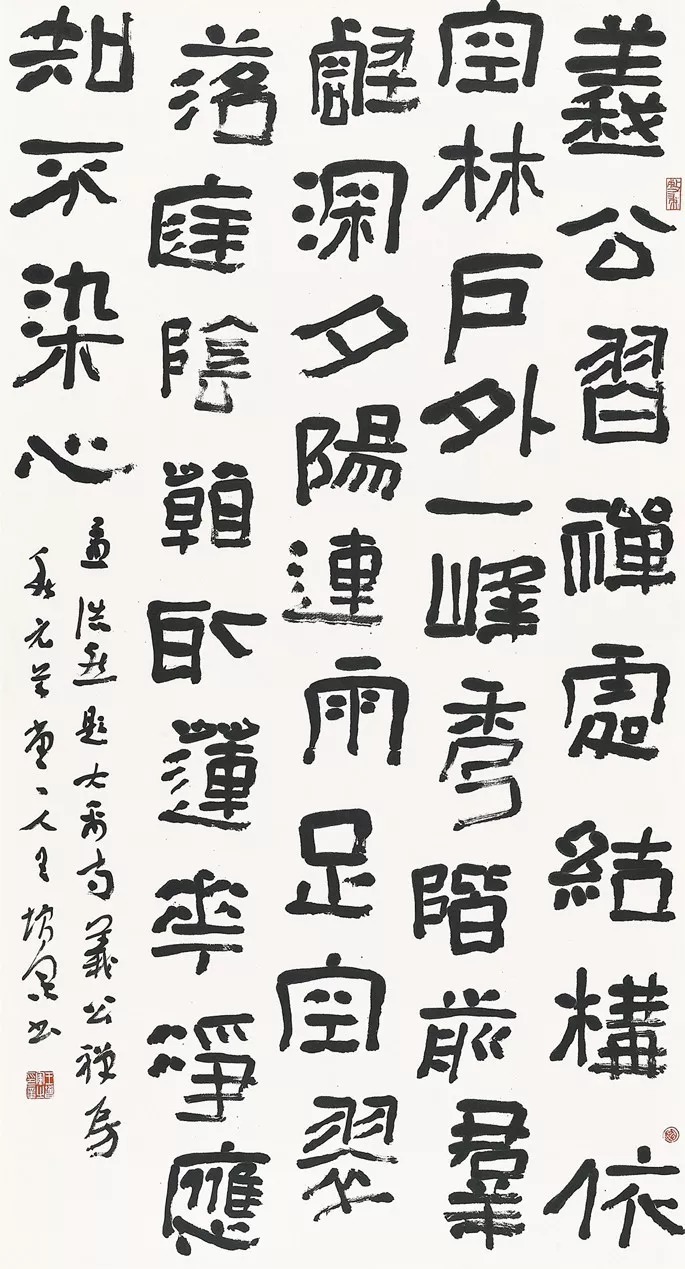 義公習禪處結構依
空林戶外一峰秀階前羣
壑深夕陽連雨足空翠
落庭陰看取蓮華淨應
知不染心
孟浩然題大禹寺義公禪房
元草堂主人王書